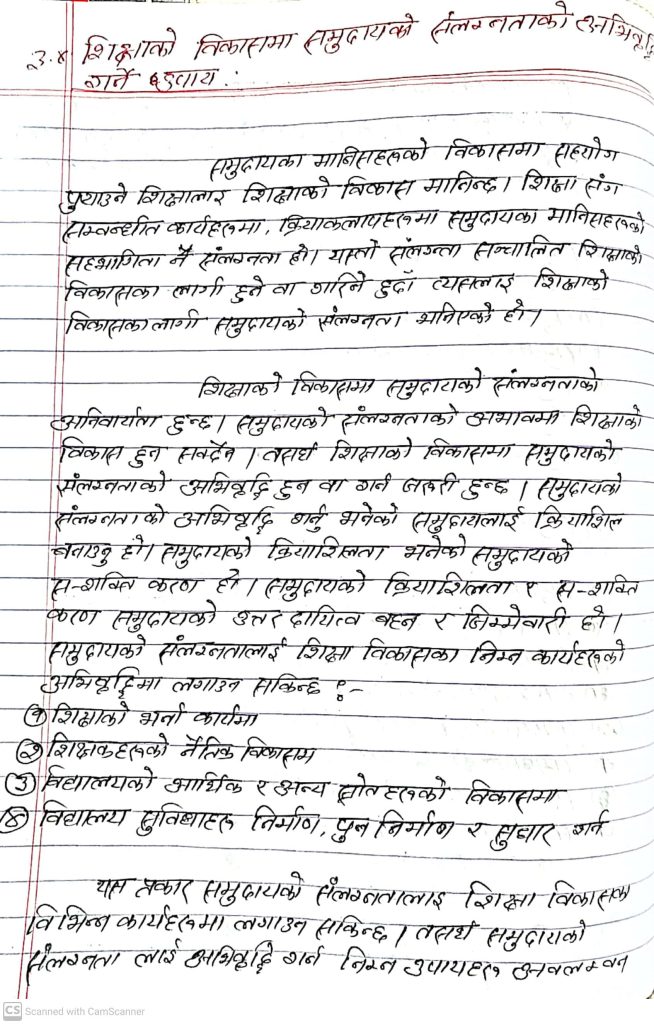 ३.४ शिक्षाको विकासमा समुदायको संलग्नताको अभिवृद्धि
गर्ने उपाय :
समुदायका मानिसहरुको विकासमा सहयोग
पुर्‍याउने शिक्षालाई शिक्षाको विकास मानिन्छ। शिक्षा संग
सम्वन्धीत कार्यहरुमा, क्रियाकलापहरुमा समुदायका मानिसहरुको
सहभागिता नै संलग्नता हो। यस्तो संलग्नता सञ्चालित शिक्षाको
विकासका लागी हुने वा गरिने हुदाँ त्यसलाई शिक्षाको
विकासका लागी समुदायको संलग्नता भनिएको हो।
शिक्षाको विकासमा समुदायको संलग्नताको
अनिवार्यता हुन्छ। समुदायको संलग्नताको अभावमा शिक्षाको
विकास हुन सक्दैन। तसर्थ शिक्षाको विकासमा समुदायको
संलग्नताको अभिवृद्धि हुन वा गर्न जरुरी हुन्छ। समुदायको
संलग्नताको अभिवृद्धि गर्नु भनेको समुदायलाई क्रियाशिल
बनाउनु हो। समुदायको क्रियाशिलता भनेको समुदायको
स-शक्ति करण हो। समुदायको क्रियाशिलता र स-शक्ति
करण समुदायको उत्तर दायित्व वहन र जिम्मेवारी हो।
समुदायको संलग्नतालाई शिक्षा विकासका निम्न कार्यहरुको
अभिवृद्धिमा लगाउन सकिन्छ :-
१ शिक्षाको भर्ना कार्यमा
२ शिक्षकहरुको नैतिक विकासमा
३ विद्यालयको आर्थिक र अन्य स्रोतहरुको विकासमा
४ विद्यालय सुविधाहरु निर्माण, पुन निर्माण र सुधार गर्न
यस प्रकार समुदायको संलग्नतालाई शिक्षा विकासका
विभिन्न कार्यहरुमा लगाउन सकिन्छ। तसर्थ समुदायको
संलग्नता लाई अभिवृद्धि गर्न निम्न उपायहरु अवलम्वन
CS Scanned with CamScanner